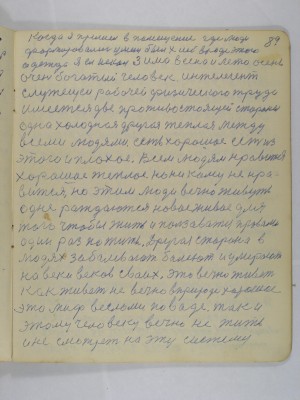 Когда я пришел в помещение где люди
89
одежда я он искал Зима весна и лето осень
очень богатый человек интелегент
служущеи рабочеи физического труда
имеется две противостоящих стороны
одна холодная другая теплая между
всеми людями есть хорошае есть из
этого и плохое. Всем людям нравится
хорошае теплое но ни кому не нра-
вится, но этим люди вечно живуть
одне раждаются новое живое для
того чтобы жить и
один раз пожить. Другая сторона в
людях заболевают болеют и умирают
на веки веков своих. Это вечно живет
как живет не вечно в природе хорошае
это мир веслом по воде. так и
этому человеку вечно не жить
и не смотреть на эту систему